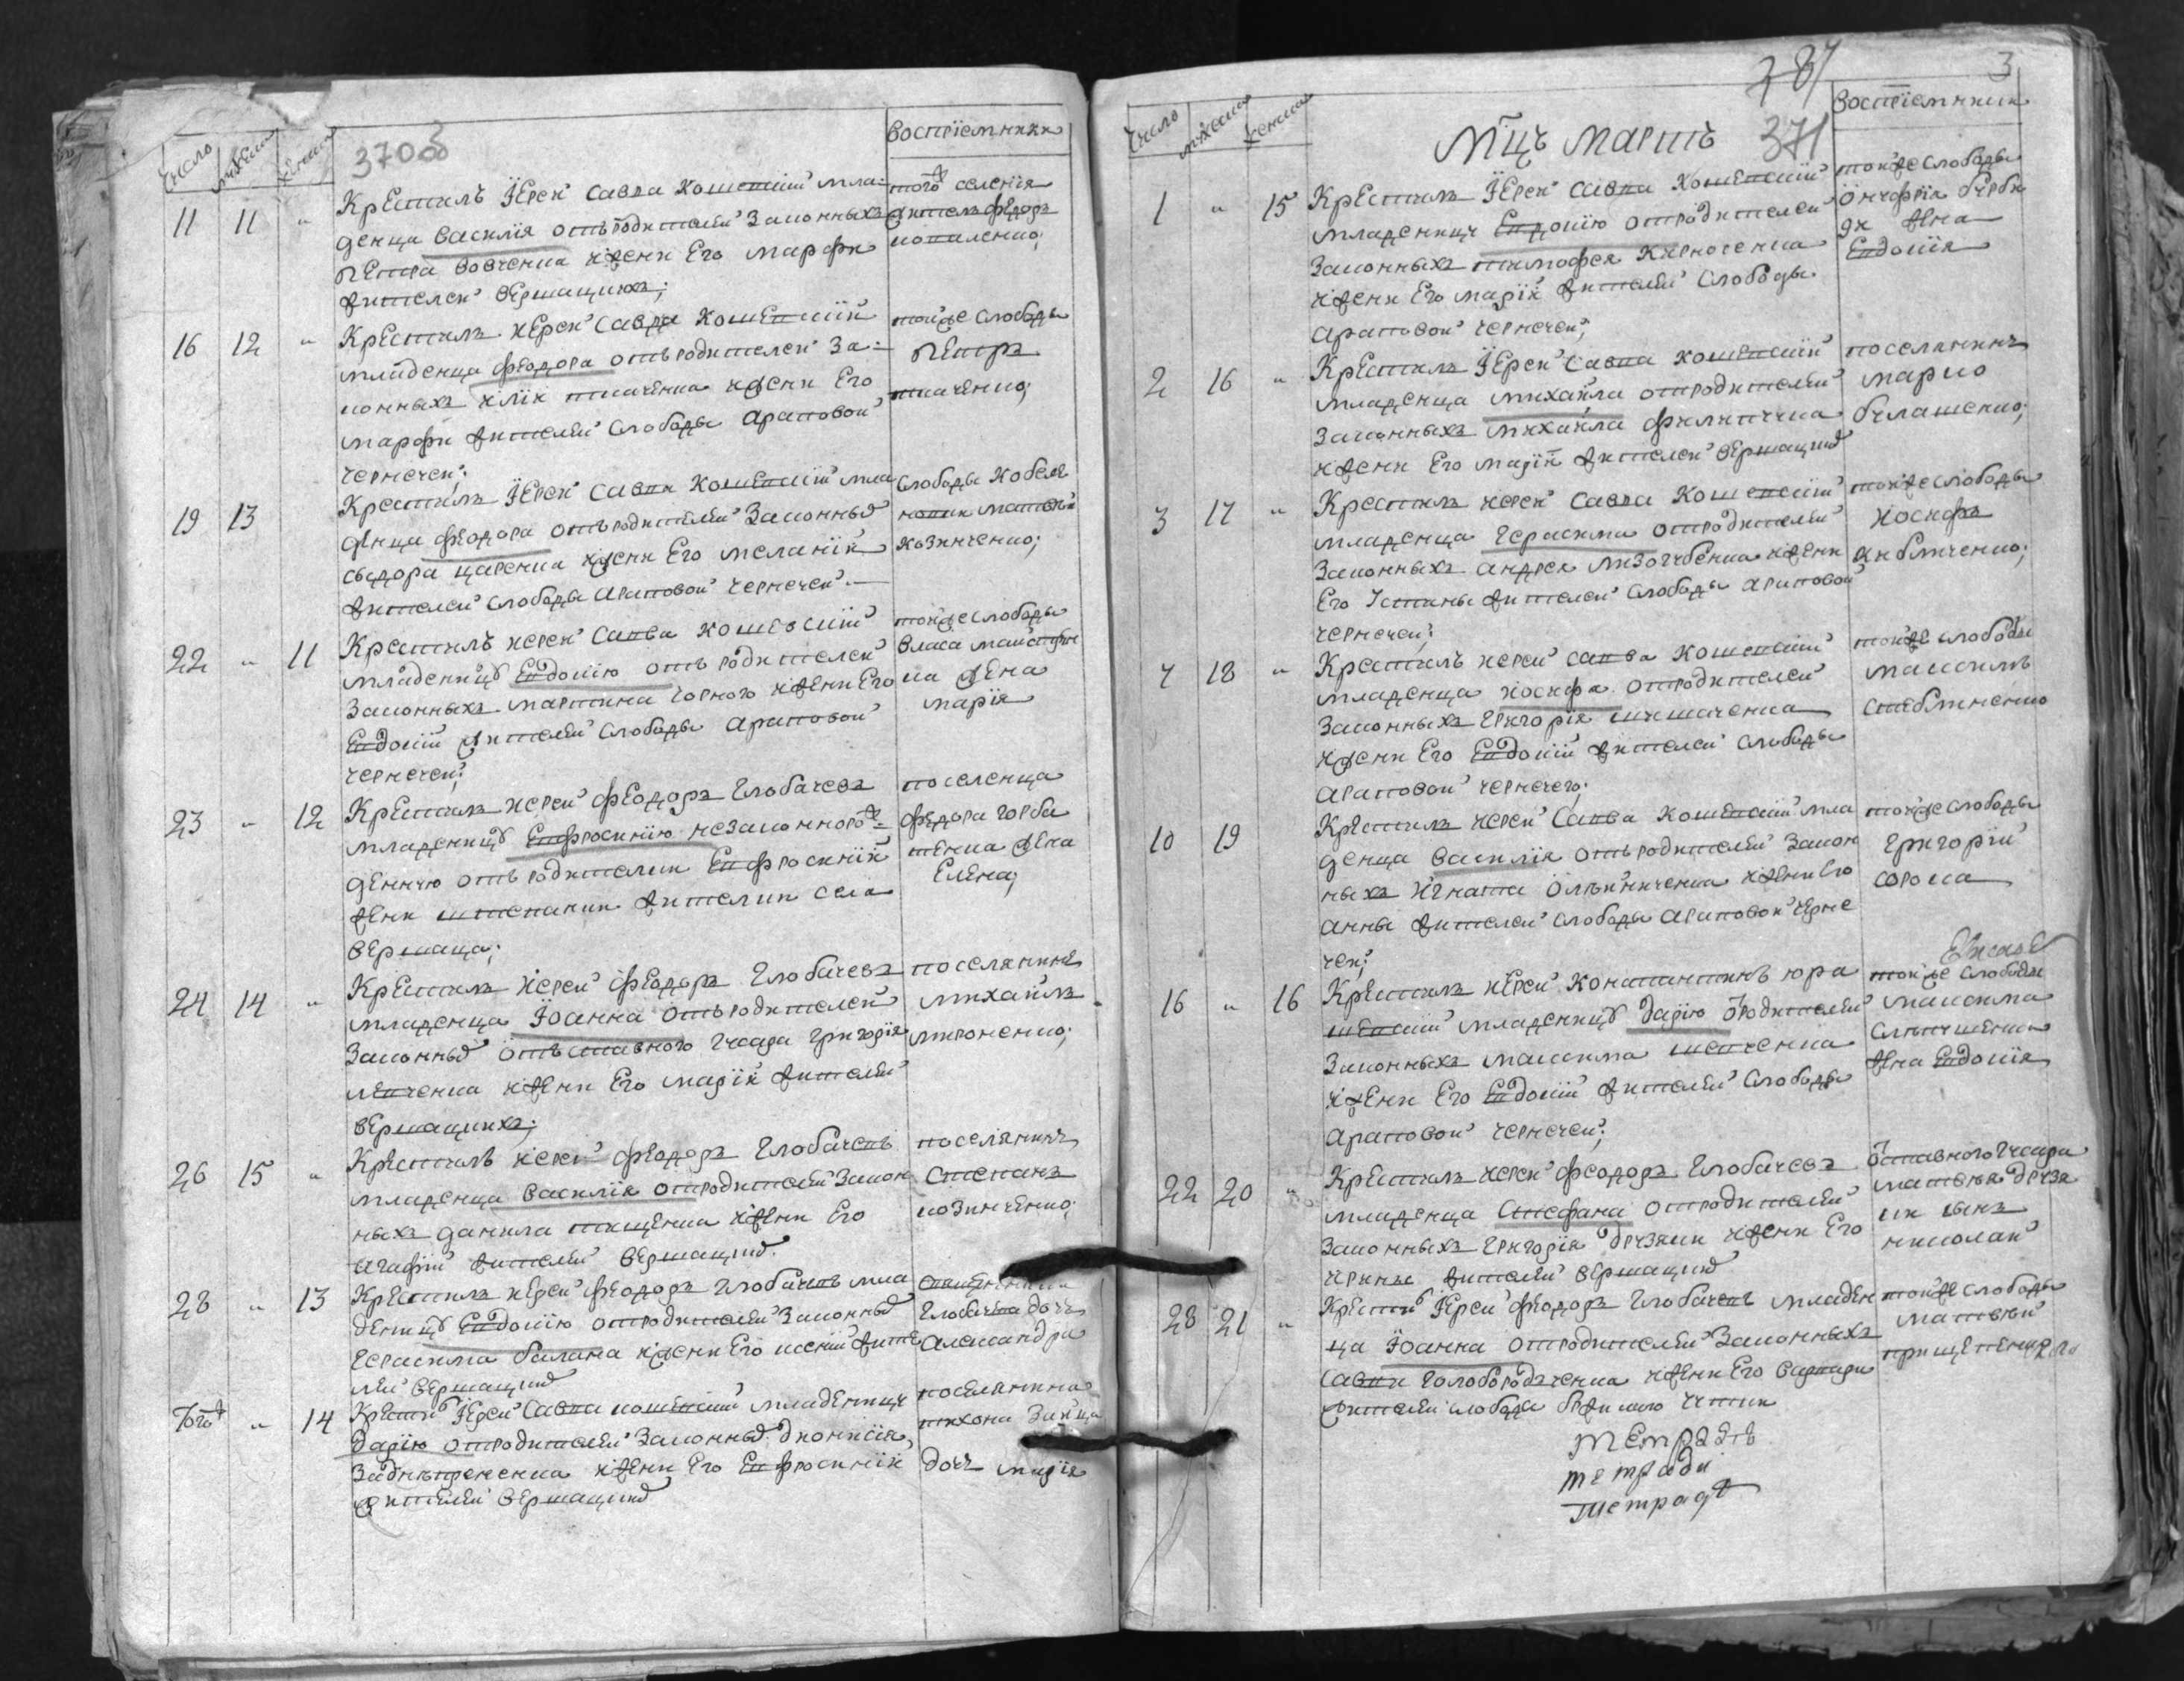 число мужеска женска
370об
воспрiемники
11 11 "
Крестилъ Їерей Савва Кошевскiй мла-
денца Василiя отъ родителей Законныхъ
Петра Вовченка и жени Его марфи
жителей Вершацкихъ;
тогож селенiя
житель Федоръ
коваленко;
16 12 "
Крестилъ иерей Савва Кошевскiй
младенца Феодора отъ родителей За-
конныхъ илiи ткаченка и жени Его
марфи жителей слободы араповой
чернечей;
тойже слободы
Петръ
ткаченко;
19 13
Крестилъ Їерей Савва Кошевскiй мла
денца Феодора отъ родителей Законныхъ
сыдора царенка и жени Его меланiи
жителей слободы араповой чернечей.
слободы
матвей
козинченко;
22 " 11
Крестилъ иерей Савва Кошевскiй
младеницу Евдокiю отъ родителей
Законныхъ мартина чорного и жени Его
Евдокiи жителей слободы араповой
чернечей;
тойже слободы
власа
ка жена
марiя
23 " 12
Крестилъ иерей Феодоръ Глобачевъ
младеницу Евфросинiю незаконнорож-
денную отъ родителки Евфросинiи
жени жителки села
вершаца;
поселенца
федора горба
тенка жена
Елена;
24 14 "
Крестилъ иерей Феодоръ Глобачевъ
младенца Їоанна отъ родителей
Законныхъ отъставного гусара григорiя
левченка и жени Его марiи жителей
вершацкихъ;
поселянинъ
михайлъ
мироненко;
26 15 "
Крестилъ иерей Феодоръ Глобачевъ
младенца василiя отъ родителей Закон
ныхъ данила тищенка и жени Его
агафiи жителей вершацкихъ.
поселянинъ
Степанъ
козинченко;
28 " 13
Крестилъ иерей Феодоръ Глобачевъ мла
деницу Евдокiю отъ родителей Законныхъ
герасима балана и жени Его ксенiи жите
лей вершацкихъ
священника
Глобачева дочь
александра
Тогож " 14
Крестилъ Їерей Савва кошевскiй младеницу
дарiю отъ родителей Законныхъ дионисiя
и жени Его Евфросинiи
жителей вершацкихъ
поселянина
тихона Заийца
дочь марiя
287 3
число мужеска женска
мцъ мартъ 371
воспрiемники
1 " 15
Крестилъ Їерей Савва Кошевскiй
младеницу Евдокiю отъ родителей
Законныхъ тимофея Кирносенка
и жени Его марiи жителей слободы
араповой чернечей;
тойже слободы
ончофрiя
жена
Евдокiя
2 16 "
Крестилъ Їерей Савва Кошевскiй
младенца михайла отъ родителей
Законныхъ михайла филипченка
и жени Его марiи жителей вершацкихъ
поселянинъ
марко
булашенко;
3 17 "
Крестилъ иерей Савва Кошевскiй
младенца герасима отъ родителей
Законныхъ андрея лизогубенка и жени
Его Їстины жителей слободы араповой
чернечей;
тойже слободы
иосифъ
якубученко;
7 18 "
Крестилъ иерей Савва Кошевскiй
младенца иосифа отъ родителей
Законныхъ григорiя
и жени Его Евдокiи жителей слободы
араповой чернечей;
тойже слободы
максимъ
стебличенко
10 19
Крестилъ иерей Савва Кошевскiй мла
денца василiя отъ родителей Закон
ныхъ игната олейниченка и жени Его
анны жителей слободы араповой черне
чей;
тойже слободы
григорiй
сорока
16 " 16
Крестилъ иерей Константинъ юра
шевскiй младеницу дарiю от родителей
Законныхъ максима шевченка
и жени Его Евдокiи жителей слободы
араповой чернечей;
тойже слободы
максима
жена Евдокiя
22 20 "
Крестилъ иерей Феодоръ Глобачевъ
младенца Стефана отъ родителей
Законныхъ григорiя друзяки и жени Его
ирины жителей вершацкихъ
отставного гусара
матвея друзя
ки сынъ
николай
28 21 "
Крестилъ Їерей Феодоръ Глобачевъ младен
ца Їоанна отъ родителей Законныхъ
Савви голобородченка и жени Его варвари
жителей слободы
тойже слободы
матвей
прищепенко
тетрадъ
тетради
тетрадъ